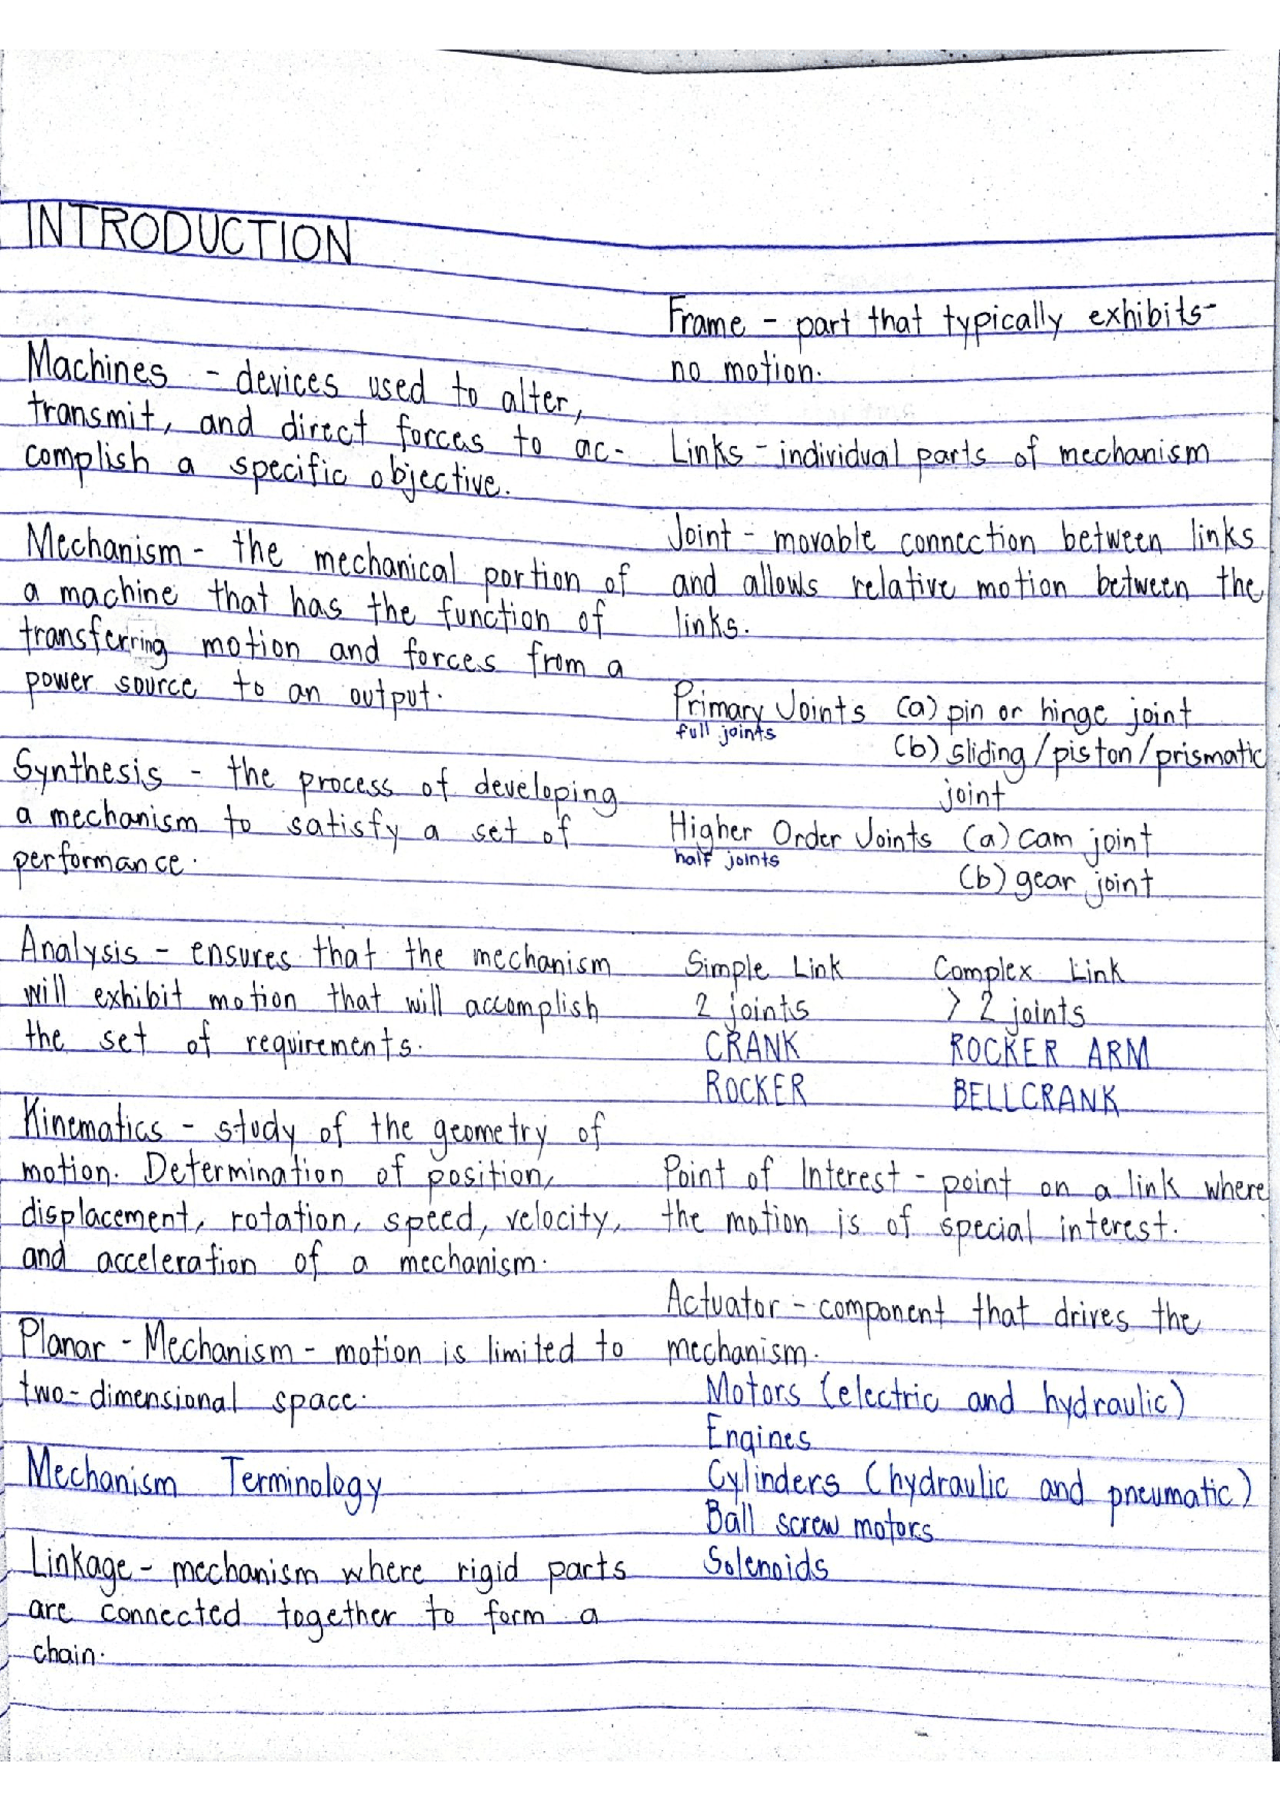 INTRODUCTION
Machines - devices used to alter,
transmit, and direct forces to ac-
complish a specific objective.
Mechanism - the mechanical portion of
a machine that has the function of
transferring motion and forces from a
power source to an output.
Synthesis - the process of developing
a mechanism to satisfy a set of
performance.
Analysis - ensures that the mechanism
will exhibit motion that will accomplish
the set of requirements.
Kinematics - study of the geometry of
motion. Determination of position,
displacement, rotation, speed, velocity,
and acceleration of a mechanism.
Planar - Mechanism - motion is limited to
two-dimensional space.
Mechanism Terminology
Linkage - mechanism where rigid parts
are connected together to form a
chain.
Frame - part that typically exhibits
no motion.
Links - individual parts of mechanism
Joint - movable connection between links
and allows relative motion between the
links.
Primary Joints (a) pin or hinge joint
full joints
(b) sliding/piston/prismatic
joint
Higher Order Joints (a) cam joint
half joints
(b) gear joint
Simple Link Complex Link
2 joints > 2 joints
CRANK ROCKER ARM
ROCKER BELLCRANK
Point of Interest - point on a link where
the motion is of special interest.
Actuator - component that drives the
mechanism.
Motors (electric and hydraulic)
Engines
Cylinders (hydraulic and pneumatic)
Ball screw motors
Solenoids